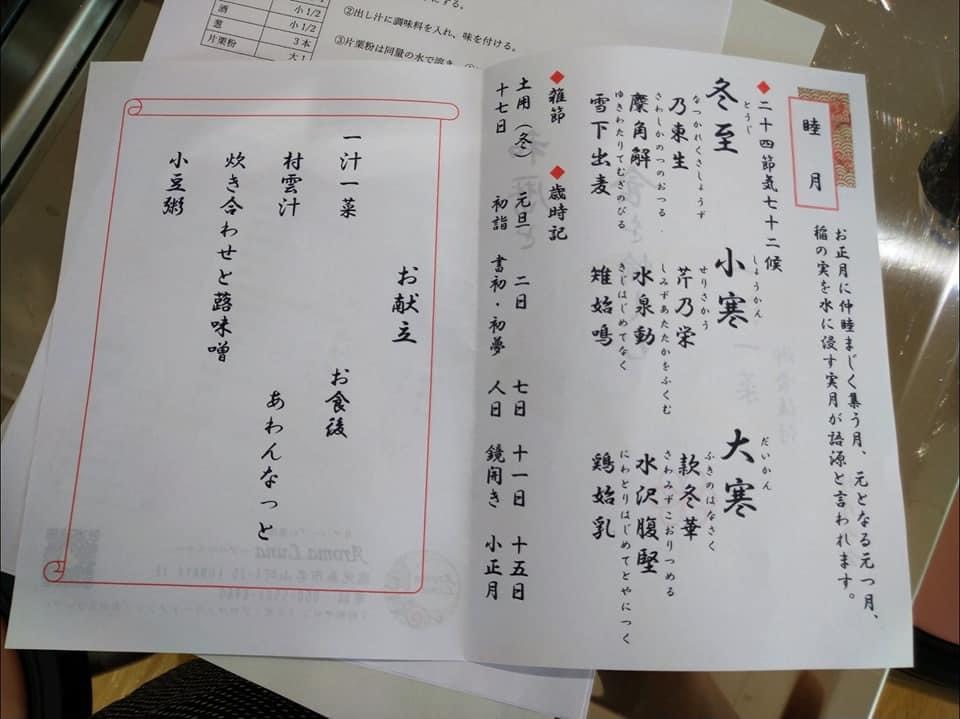 酒 小 1/2
葱 小 1/2
片栗粉 3本
大 1
にする。
②出し汁に調味料を入れ、味を付ける。
③片栗粉は同量の水で溶き、
睦月
お正月に仲睦まじく集う月、元となる元つ月、
稲の実を水に浸す実月が語源と言われます。
◆二十四節気七十二候
とうじ
冬至
なつかれくさしょうず
乃東生
さわしかのつのおつる
麋角解
ゆきわたりてむぎのびる
雪下出麦
しょうかん
小寒
せりさかう
芹乃栄
しみずあたたかをふくむ
水泉動
きじはじめてなく
雉始鳴
だいかん
大寒
ふきのはなさく
款冬華
さわみずこおりつめる
水沢腹堅
にわとりはじめてとやにつく
鶏始乳
◆雑節
土用（冬）
十七日
◆歳時記
元旦 二日 七日 十一日 十五日
初詣 書初・初夢 人日 鏡開き 小正月
お献立
一汁一菜
村雲汁
炊き合わせと蕗味噌
小豆粥
お食後
あわんなっと
Aroma Luna